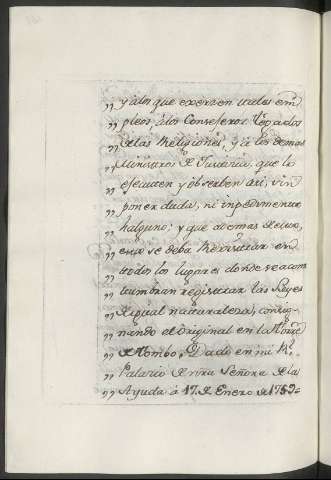 „ y a los que exersen tales em
„ pleos, a los Consejeros Dіputados
„ de las Religiones, y a los demas
„ Ministros de Justicia, que lo
„ ejecuten y observen asi, sin
„ poner duda, ni inpedimento
„ halguno; y que ademas de esto,
„ esta se deba Registrar en
„ todos los lugares donde se acos
„ tumbran registrar las Leyes
„ de igual naturaleza, consig
„ nando el original en la Torre
„ de Tombo. Dado en mi Rl.
„ Palacio de ntra Señora de la
„ Ayuda à 17. de Enero de 1759=